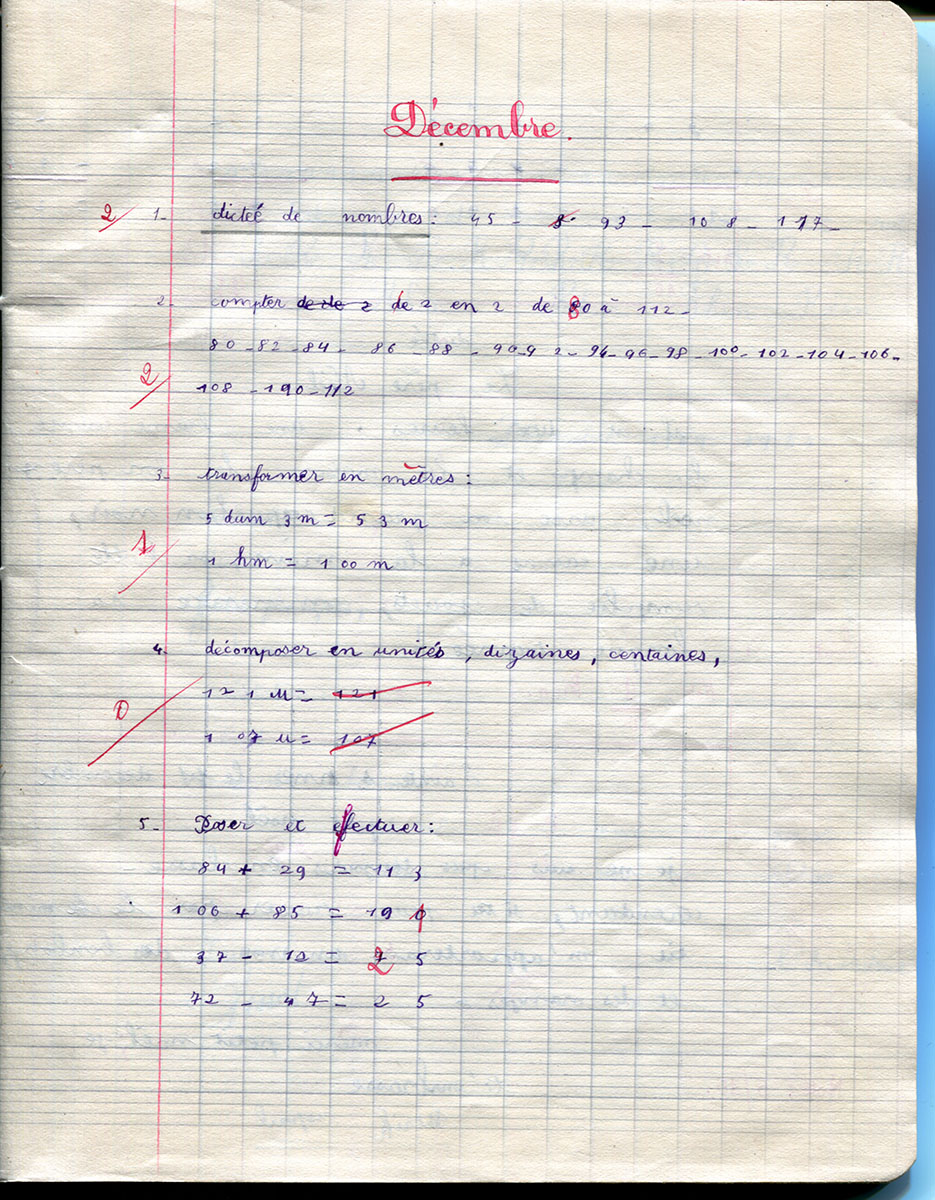 Décembre.
2 1- dicteé de nombres : 45 - 93 - 108 - 117 -
2- compter de 2 en 2 de 80 à 112 -
80 - 82 - 84 - 86 - 88 - 90 - 9 2 - 94 - 96 - 98 - 100 - 102 - 104 - 106 -
2 108 - 190 - 112
3- transformer en mètres :
5 dam 3 m = 5 3 m
1 1 hm = 1 00 m
4- décomposer en unités, dizaines, centaines,
0 12 1 u = 121
1 07 u = 107
5- Poser et effectuer :
84 + 29 = 11 3
106 + 85 = 19
37 - 12 = 2 5
72 - 47 = 2 5